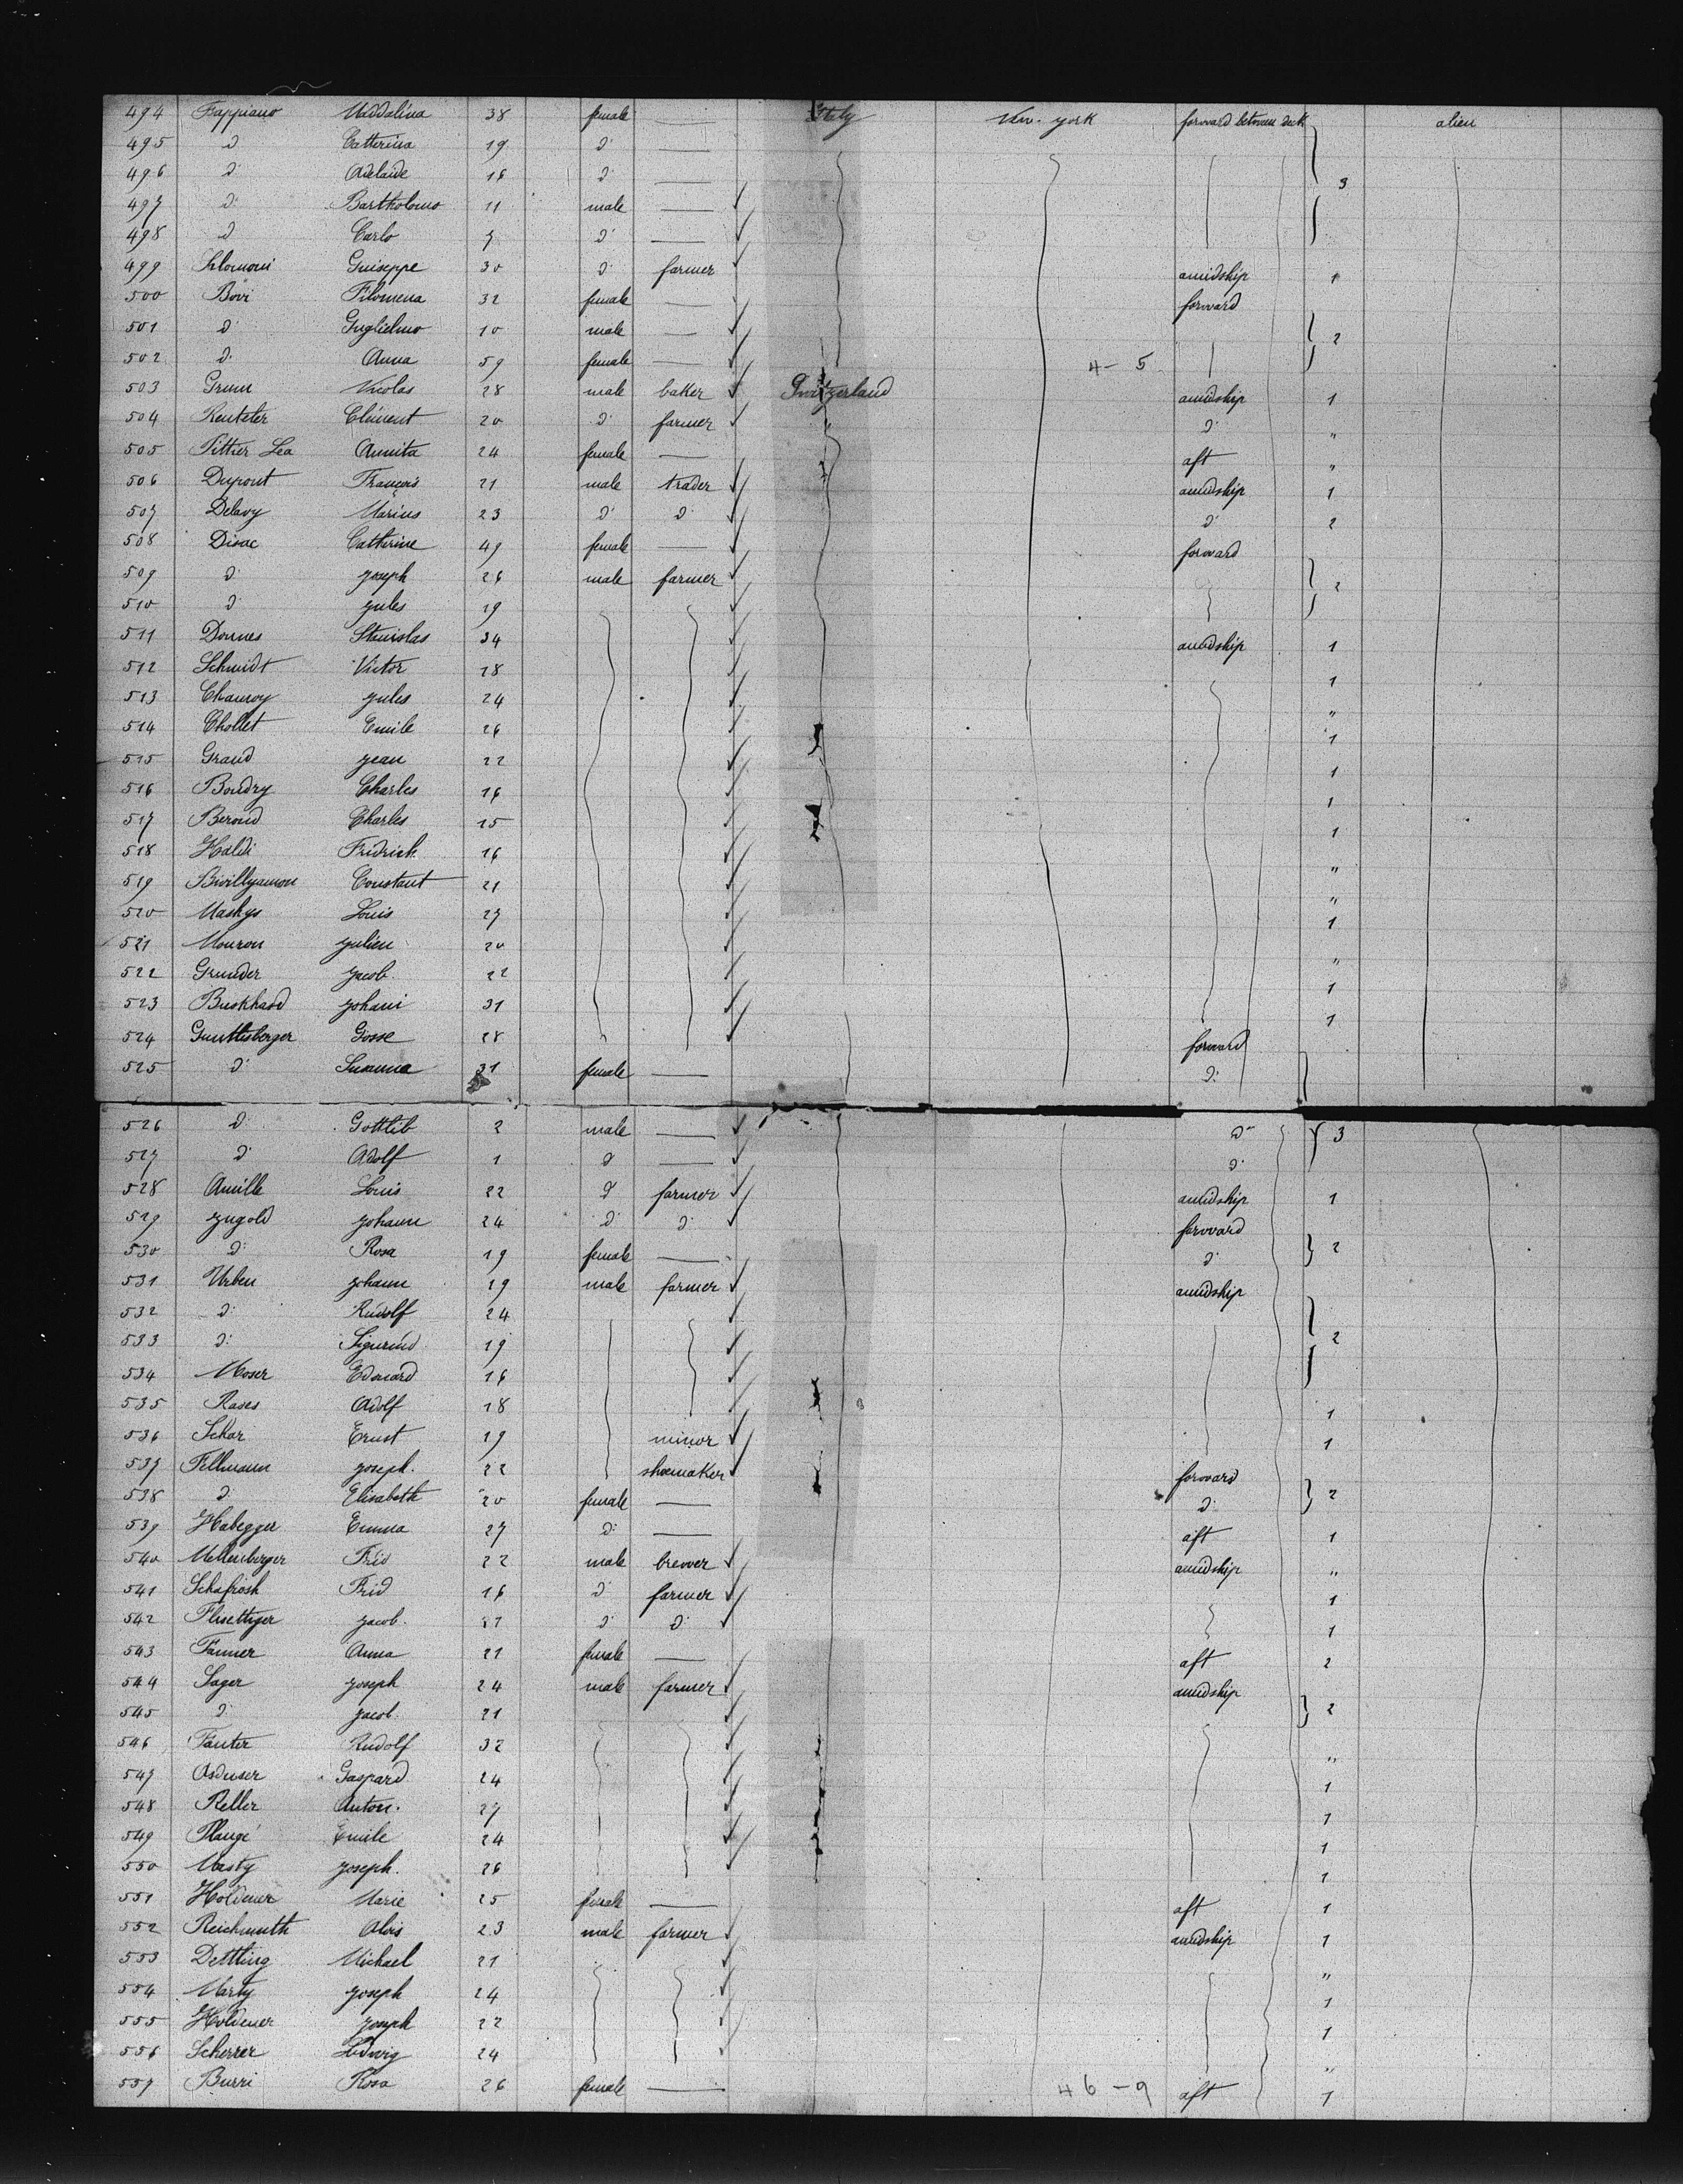 494 Fappiano Maddalina 38 female — Italy New-york forward between deck alien
495 d° Catterina 19 d° —
496 d° Adelaide 16 d° — 3
497 d° Bartholomo 11 male —
498 d° Carlo 7 d° —
499 Guiseppe 30 d° farmer amidship 1
500 Bovi Filomena 32 female — forward
501 d° Guglielmo 10 male — 2
502 d° Anna 59 female — 4-5
503 Grum Nicolas 28 male baker Switzerland amidship 1
504 Renteler Clément 20 d° farmer " d° "
505 Pittier Lea Annita 24 female — aft "
506 Dupont François 21 male trader amidship 1
507 Delavy Marius 23 d° d° d° 2
508 Disac Catherine 49 female — forward
509 d° joseph 26 male farmer 2
510 d° jules 19
511 Donnes Stanislas 34 amidship 1
512 Schmidt Victor 28 1
513 Chamroy jules 24 "
514 Chollet Emile 26 1
515 Grand jean 22 1
516 Boudry Charles 16 1
517 Beroud Charles 15 1
518 Haldi Fridrich 16 "
519 Constant 21 "
520 Louis 27 1
521 Mouron julien 20 "
522 Grunder jacob 22 1
523 Burkhard johani 31 1
524 Gosse 28 forward
525 d° Susanna 31 female — d°
526 d° Gottlib 2 male — d° 3
527 d° Adolf 1 d° — d°
528 Amille Louis 22 d° farmer amidship 1
529 jngold johann 24 d° d° forward
530 d° Rosa 19 female — d° 2
531 Urben johann 29 male farmer amidship
532 d° Rudolf 24
533 d° Sigmund 19 2
534 Moser Edouard 16
535 Rases Adolf 18 1
536 Schar Ernst 19 minor 1
537 Fellmann joseph. 22 shoemaker forward
538 d° Elisabeth 20 female — d° 2
539 Habegger Emma 27 d° — aft 1
540 Mellenberger Frid 22 male brewer amidship "
541 Schafrosh Frid 16 d° farmer 1
542 jacob. d° d° 1
543 Fanner Anna 21 female — aft 2
544 Sager joseph 24 male farmer amidship
545 d° jacob. 21 2
546 Fauter Rudolf 32 "
547 Asduser Gaspard 24 1
548 Reller Anton. 27 1
549 Plaugé Emile 24 1
550 Masty joseph. 26 1
551 Holdener Marie 25 female — aft 1
552 Reichmuth Alois 23 male farmer amidship 1
553 Dettling Michael 21 "
554 Marty joseph 24 1
555 Holdener joseph 22 1
556 Scherrer Ludwig 24 "
557 Burri Rosa 26 female — 46-9 aft 1